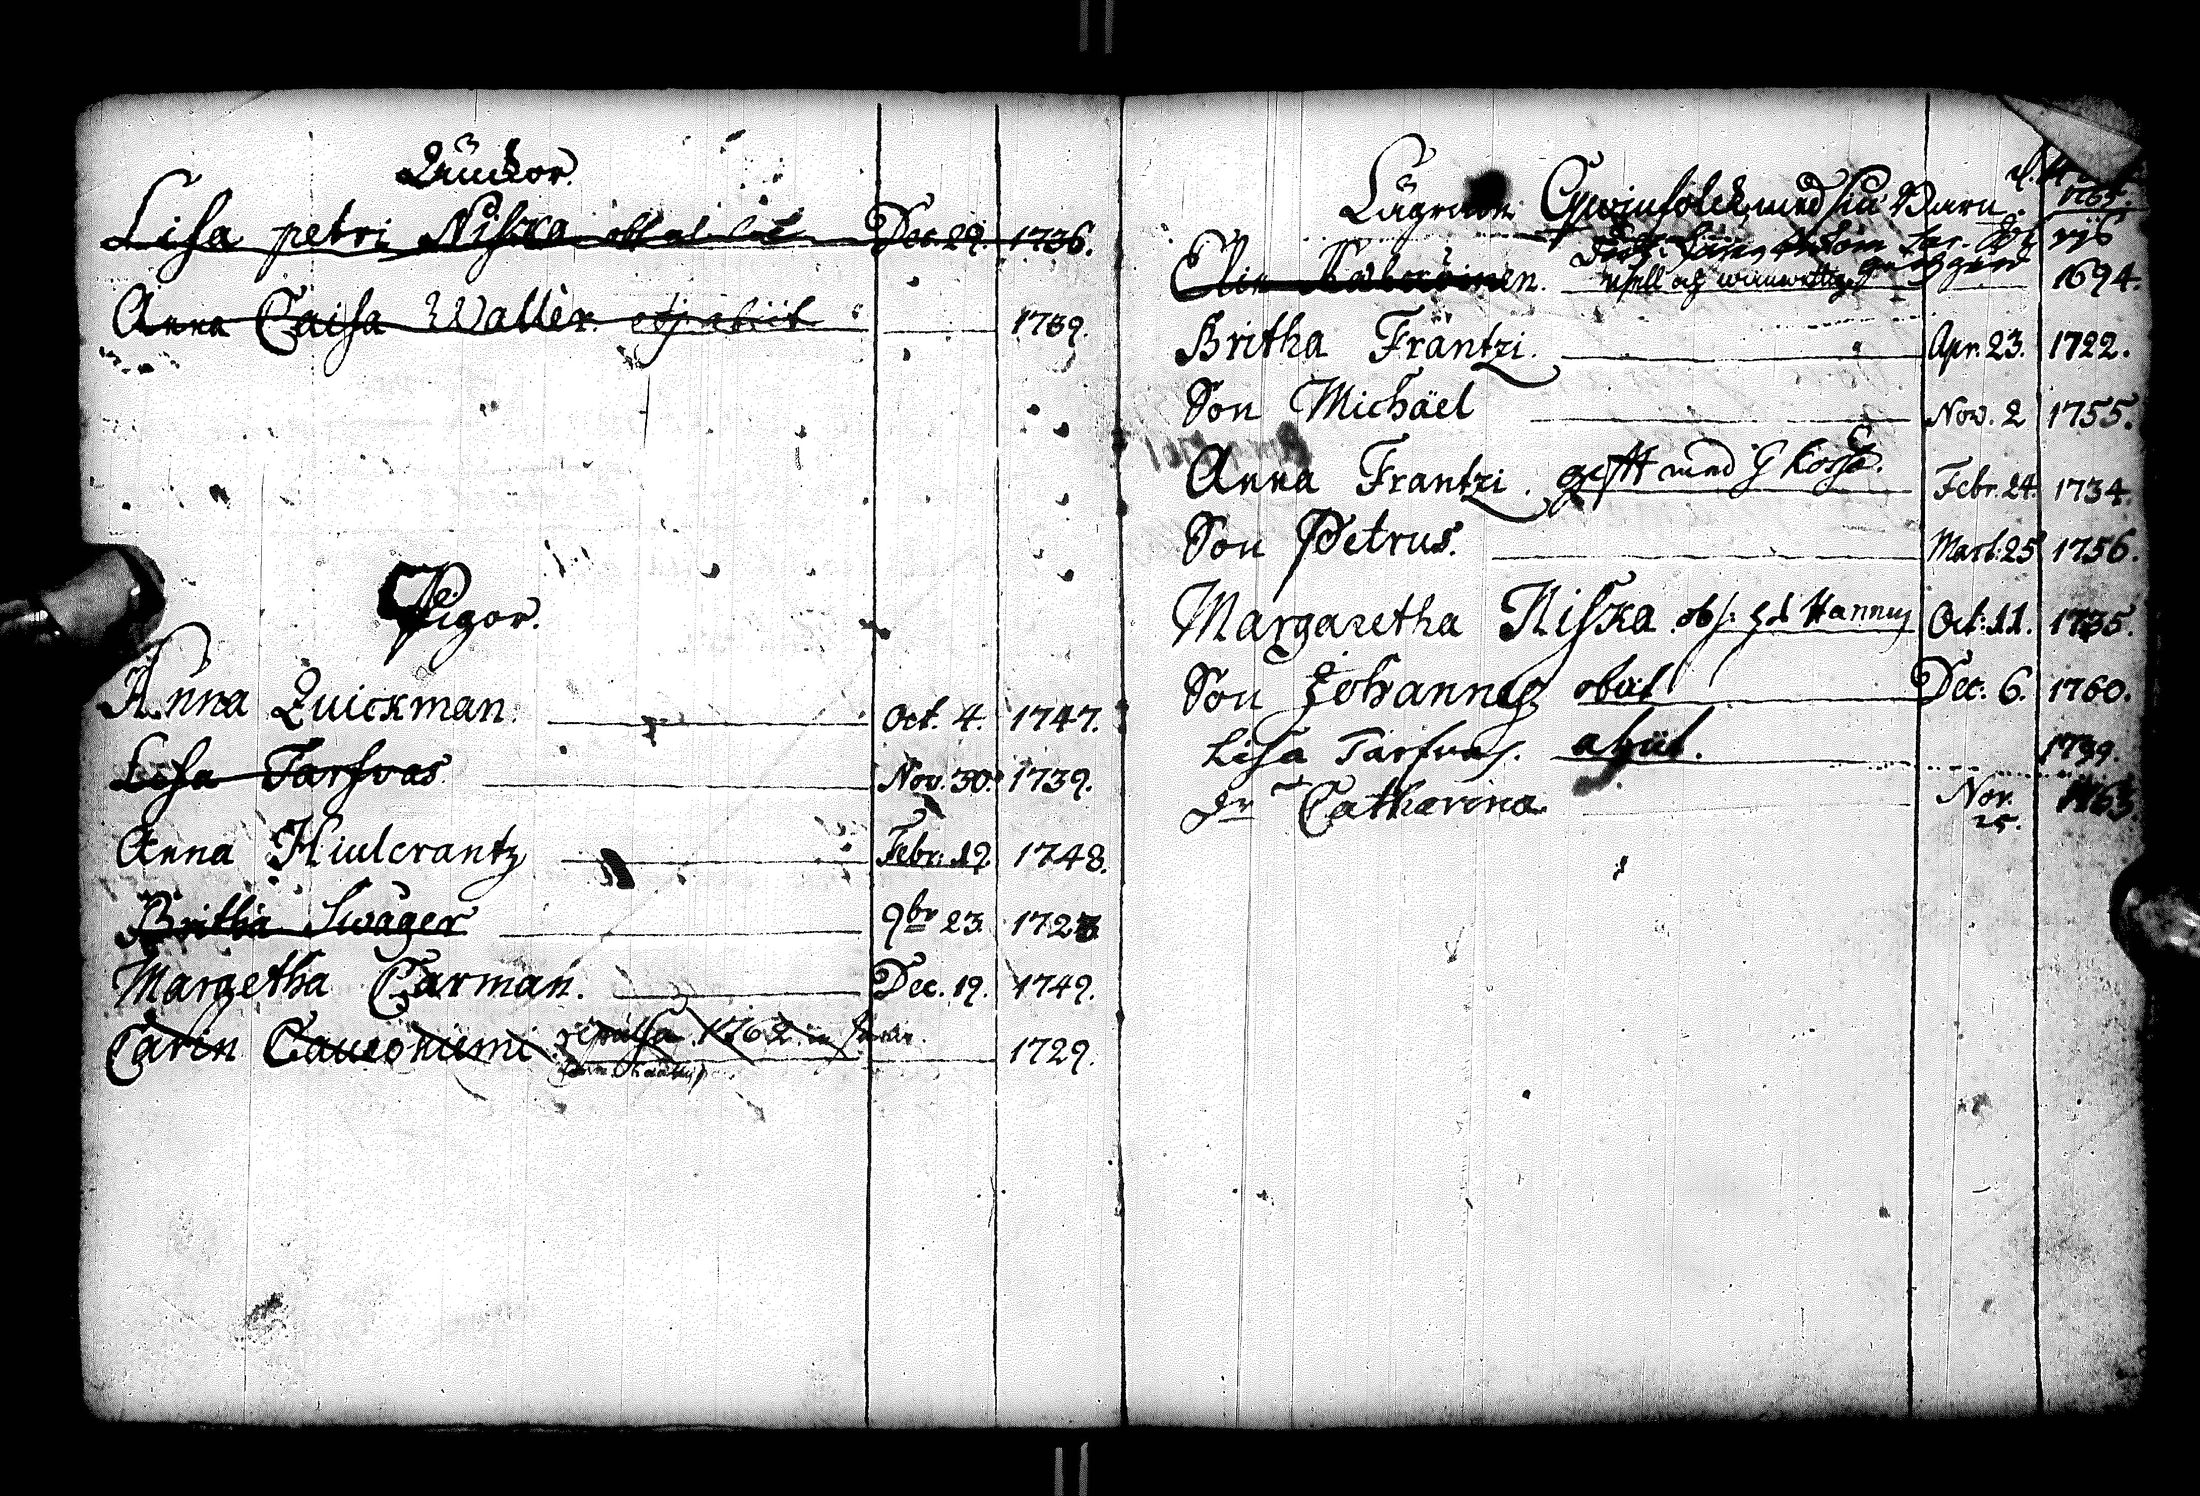 Lisa petri Niska Dec. 29. 1736.
Anna Caisa Waller. abiit 1739.
Pigor.
Anna Quickman. Oct. 4. 1747.
Lisa Tarfvas Nov. 30. 1739.
Anna Hiulcrantz Febr. 19. 1748.
Britha Swäger 9br 23. 1723
Margetha Carman. Dec. 19. 1749.
Carin 1762 1729.
Lägrade Qwinfolck med sin Barn.
1765.
Elin 1694.
Britha Frantzi. Apr. 23. 1722.
Son Michäel Nov. 2 1755.
Anna Frantzi. gift med G Kosk. Febr. 24. 1734.
Son Petrus. Mart. 25 1756.
Margaretha Niska. Hannus Oct. 11. 1735.
Son Johannes obiit Dec. 6. 1760.
Lisa Tarfvas. abiit. 1739.
Dr Catharina Nov. 25. 1763.